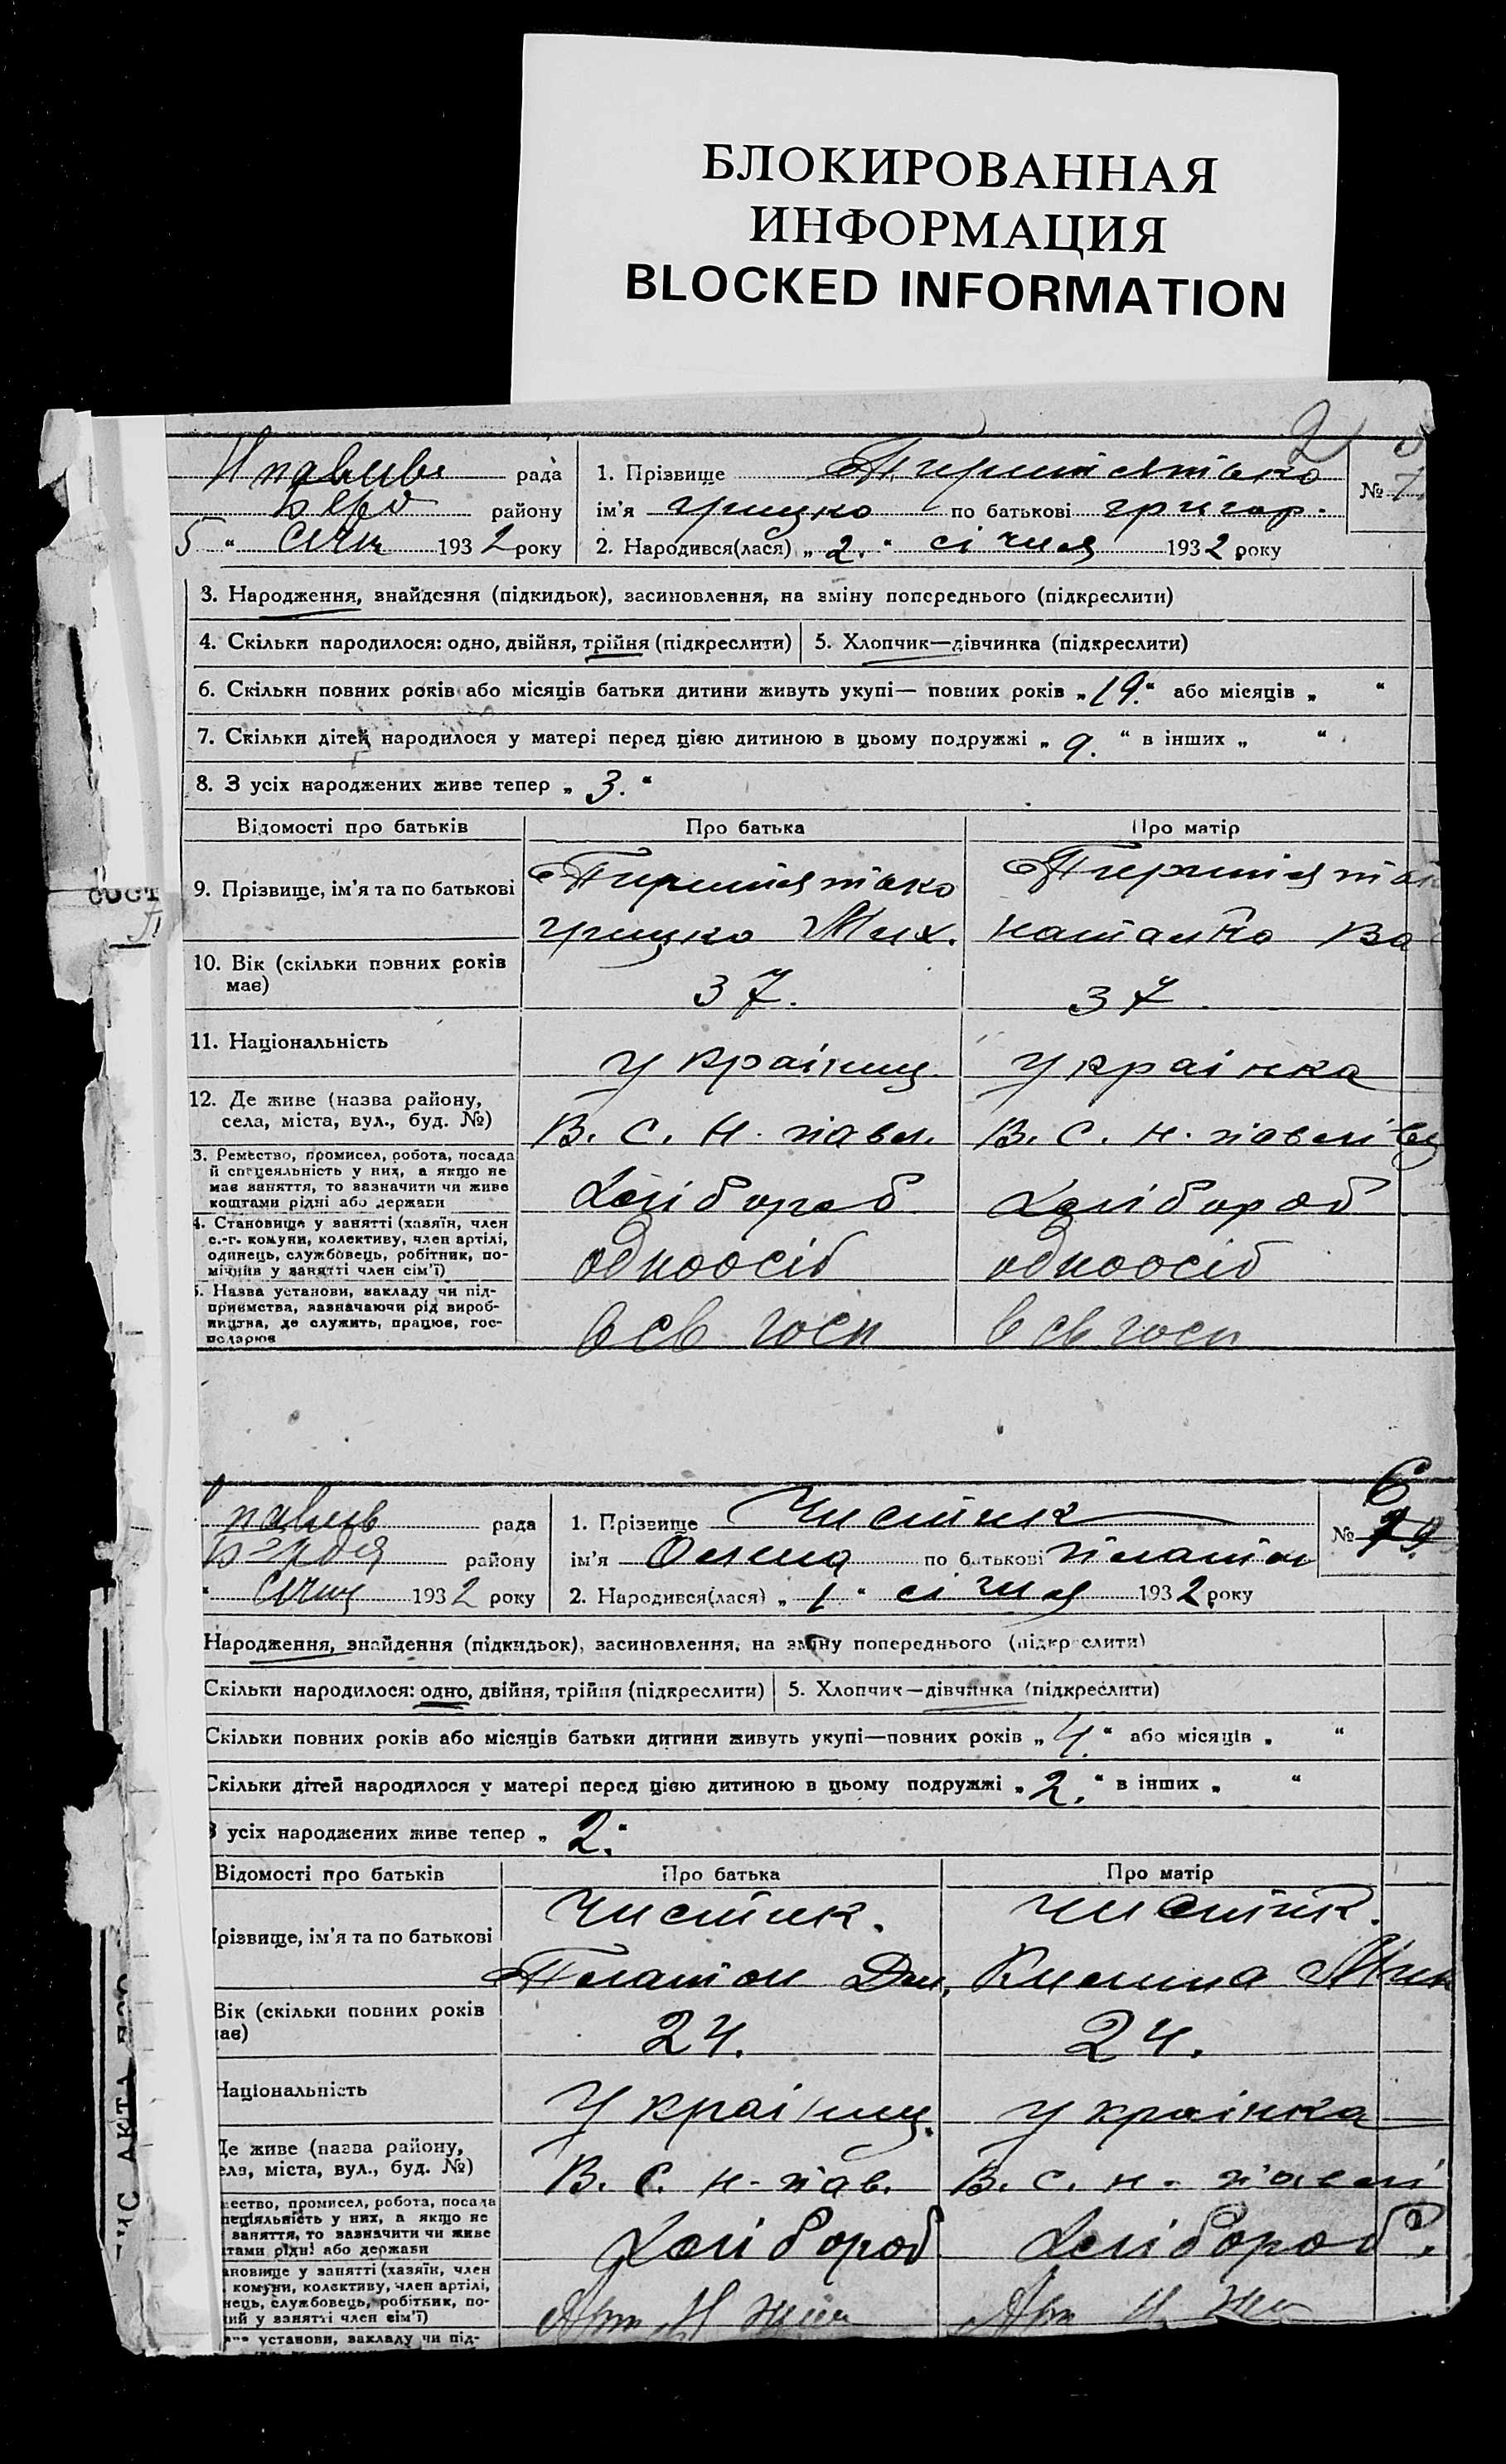 БЛОКИРОВАННАЯ
ИНФОРМАЦИЯ
BLOCKED INFORMATION
2
рада 1. Прізвище №
району ім'я Грицко по батькові григор.
5 " січн 1932 року 2. Народився(лася) „ 2. " січня 1932 року
3. Народження, знайдення (підкидьок), засиновлення, на зміну попереднього (підкреслити)
4. Скільки народилося: одно, двійня, трійня (підкреслити) 5. Хлопчик—дівчинка (підкреслити)
6. Скільки повних років або місяців батьки дитини живуть укупі— повних років „ 19. " або місяців „ "
7. Скільки дітей народилося у матері перед цією дитиною в цьому подружжі „ 9. " в інших „ "
8. З усіх народжених живе тепер „ 3. "
Відомості про батьків Про батька Про матір
9. Прізвище, ім'я та по батькові
грицко Мих.
10. Вік (скільки повних років
має) 37. 37.
11. Національність українц. українка
12. Де живе (назва району,
села, міста, вул., буд. №) В. С. Н. павл. В. С. Н. павлівц
3. Ремество, промисел, робота, посада
й спецеяльність у них, а якщо не
має заняття, то зазначити чи живе
коштами рідні або держави Хліbороб Хліbороб
4. Становище у занятті (хазяїн, член
с.-г. комуни, колективу, член артілі,
одинець, службовець, робітник, по-
мічний у занятті член сім'ї) одноосіб одноосіб
5. Назва установи, закладу чи під-
приємства, зазначаючи рід вироб-
ництва, де служить, працює, гос-
подарює в св госп в св госп
6
рада 1. Прізвище Чистик №
району ім'я Олена по батькові платон
" січня 1932 року 2. Народився(лася) „ 1 " січня 1932 року
Народження, знайдення (підкидьок), засиновлення, на зміну попереднього (підкреслити)
Скільки народилося: одно, двійня, трійня (підкреслити) 5. Хлопчик—дівчинка (підкреслити)
Скільки повних років або місяців батьки дитини живуть укупі—повних років „ 4. " або місяців „ "
Скільки дітей народилося у матері перед цією дитиною в цьому подружжі „ 2. " в інших „ "
З усіх народжених живе тепер „ 2. "
Відомості про батьків Про батька Про матір
Чистик. Чистик.
Прізвище, ім'я та по батькові
Платон Дм.
Вік (скільки повних років
має) 24. 24.
Національність українц. українка
Де живе (назва району,
села, міста, вул., буд. №) В. С. Н-пав. В. С. Н-павлі
ество, промисел, робота, посада
пеціяльність у них, а якщо не
заняття, то зазначити чи живе
тами рідні або держави Хлібороб Хлібороб.
ановище у занятті (хазяїн, член
комуни, колективу, член артілі,
нець, службовець, робітник, по-
ний у занятті член сім'ї)
установи, закладу чи під-